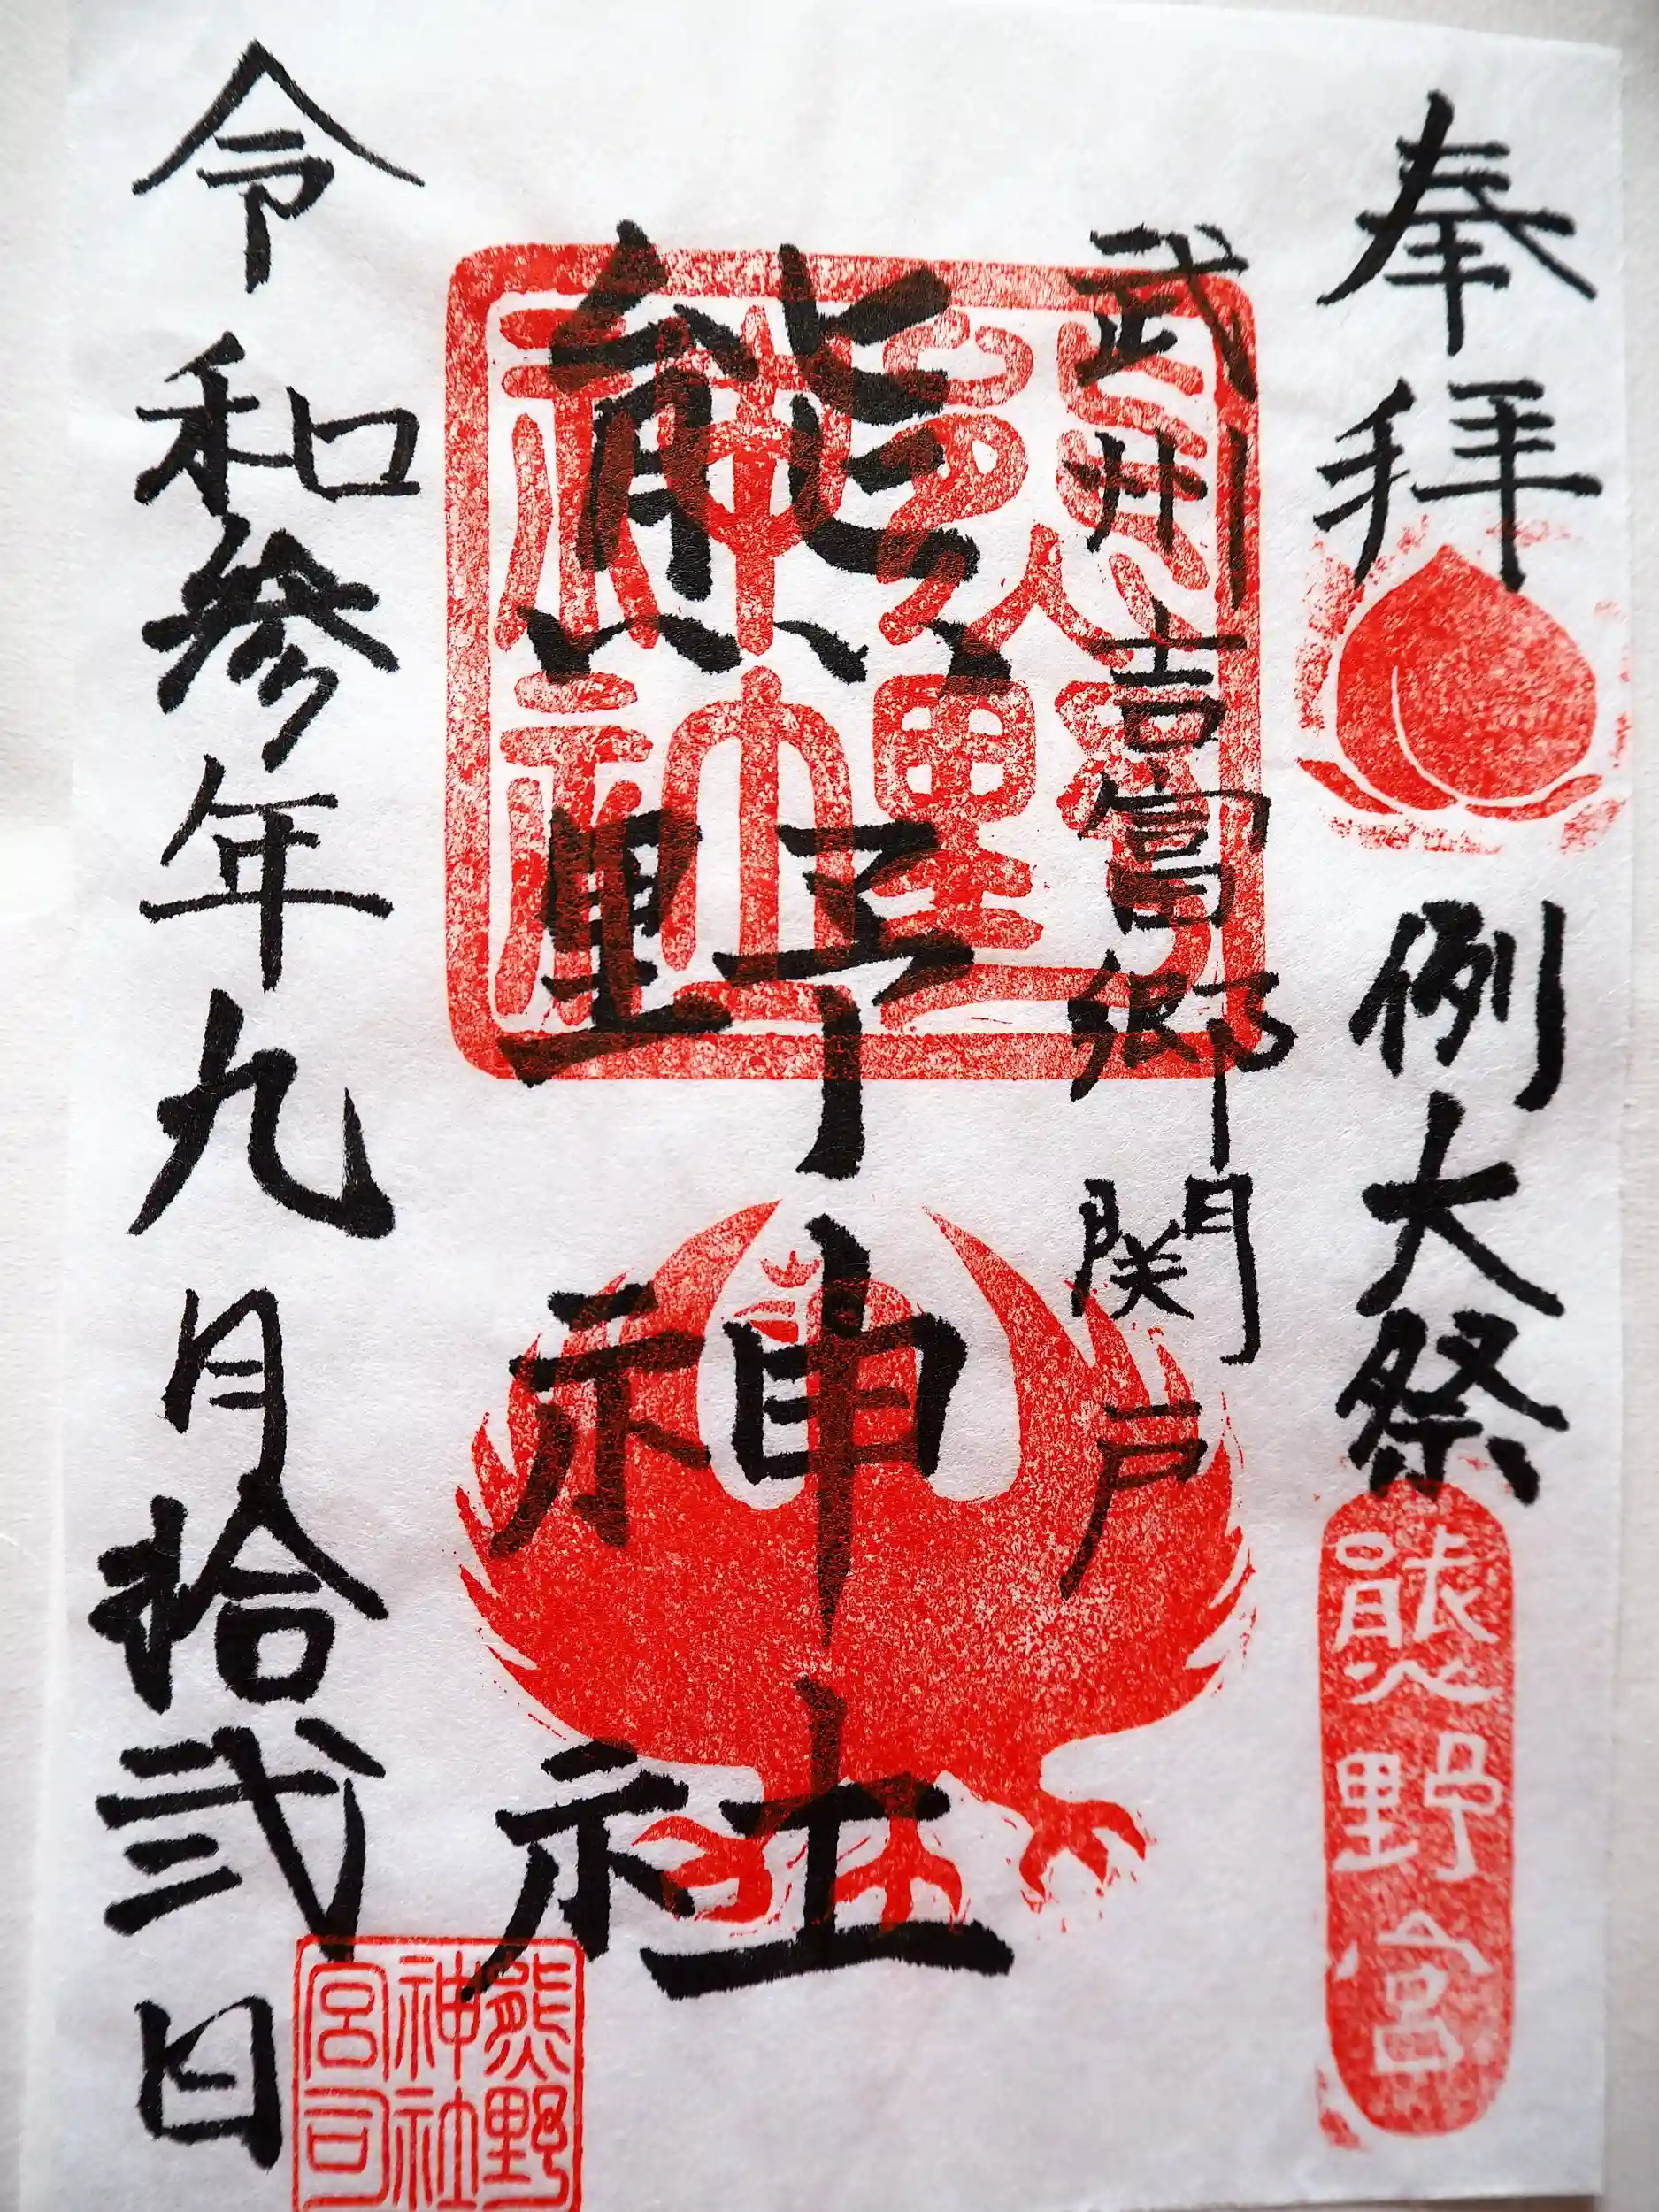 奉拝
例大祭
熊野宮
武州吉富郷関戸
熊野神社
令和参年九月拾弐日
熊野
神社
宮司